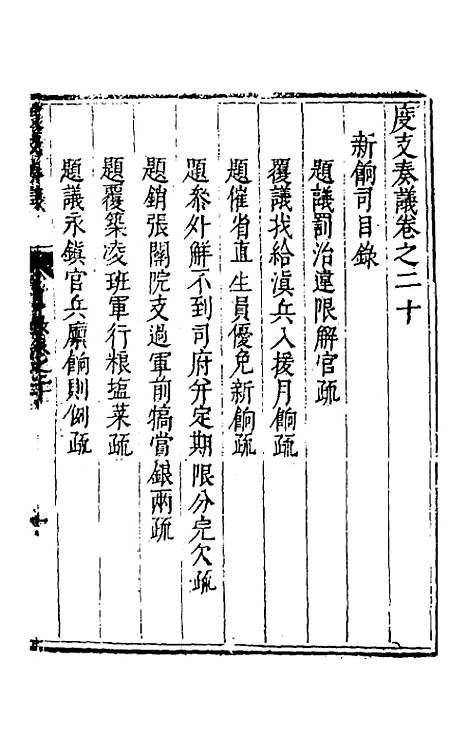 度支奏議卷之二十
新餉司目錄
題議罰治違限解官疏
覆議找給滇兵入援月餉疏
題催省直生員優免新餉疏
題叅外解不到司府幷定期限分完欠疏
題銷張閣院支過軍前犒賞銀兩疏
題覆築凌班軍行粮塩菜疏
題議永鎮官兵廪餉則例疏